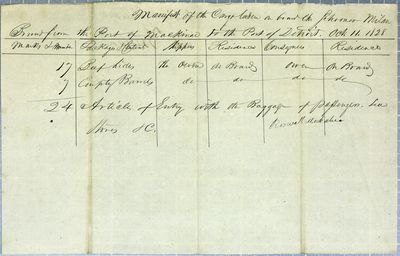 Manifest of the Cargo taken on board the Schooner Milan
Bound from the Port of Mackinac to the Port of Detroit. Oct 11. 1828
Marks & Numbs Packages & Content Shippers Residence Consignees Residences
17 Beef hides the Owner on Board Owner On Board
7 Empty Barrels do do do do
24 Articles of Entry with the Baggage of passengers. Sea
Stores &C.